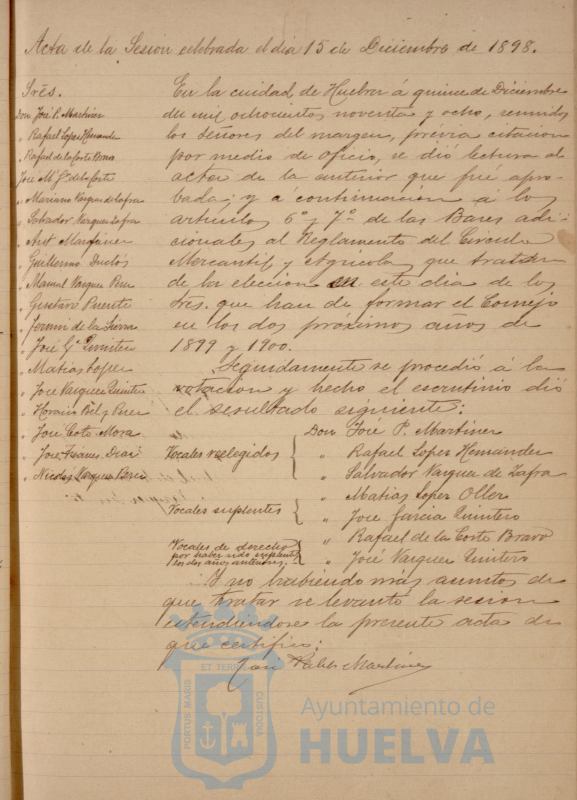 Acta de la Sesion celebrada el dia 15 de Diciembre de 1898.
Srēs.
Don José P. Martinez
" Rafael Lopez Hernandez
" Rafael de la Corte Bravo
José Mª G. de la Corte
" Mariano Vazquez de Zafra
" Salvador Vazquez Zafra
" Ant
Guillermo Duclós
" Manuel Vazquez Perez
" Gustavo Puente
" Fermin de la Sierra
" José Gª Quintero
" Matias Lopez
" Jose Vazquez Quintero
" Horacio Bel y Perez
" José Coto Mora
" Jose Diaz
" Nicolas Vazquez Perez
En la ciudad de Huelva á quince de Diciembre
de mil ochocientos noventa y ocho, reunidos
los Señores del margen, prévia citacion
por medio de oficio, se dió lectura al
acta de la anterior que fué apro-
bada; y á continuación á los
articulos 6º y 7º de las Bases adi-
cionales al Reglamento del Circulo
Mercantil y Agricola, que tratan
de la eleccion en este dia de los
Sres. que han de formar el Consejo
en los dos próximos años de
1899 y 1900.
Seguidamente se procedió á la
votacion y hecho el escrutinio dió
el resultado siguiente:
Vocales reelegidos { Don José P. Martinez
" Rafael Lopez Hernandez
" Salvador Vazquez de Zafra
Vocales suplentes { " Matias Lopez Oller
" Jose Garcia Quintero
Vocales de derecho por haber sido suplentes los dos años anteriores. { " Rafael de la Corte Bravo
" José Vazquez Quintero
Y no habiendo más asuntos de
que tratar se levantó la sesion
estendiéndose la presente acta de
que certifico:
Pablo Martinez
PORTUS MARIS ET TERRE CUSTODIA
Ayuntamiento de
HUELVA